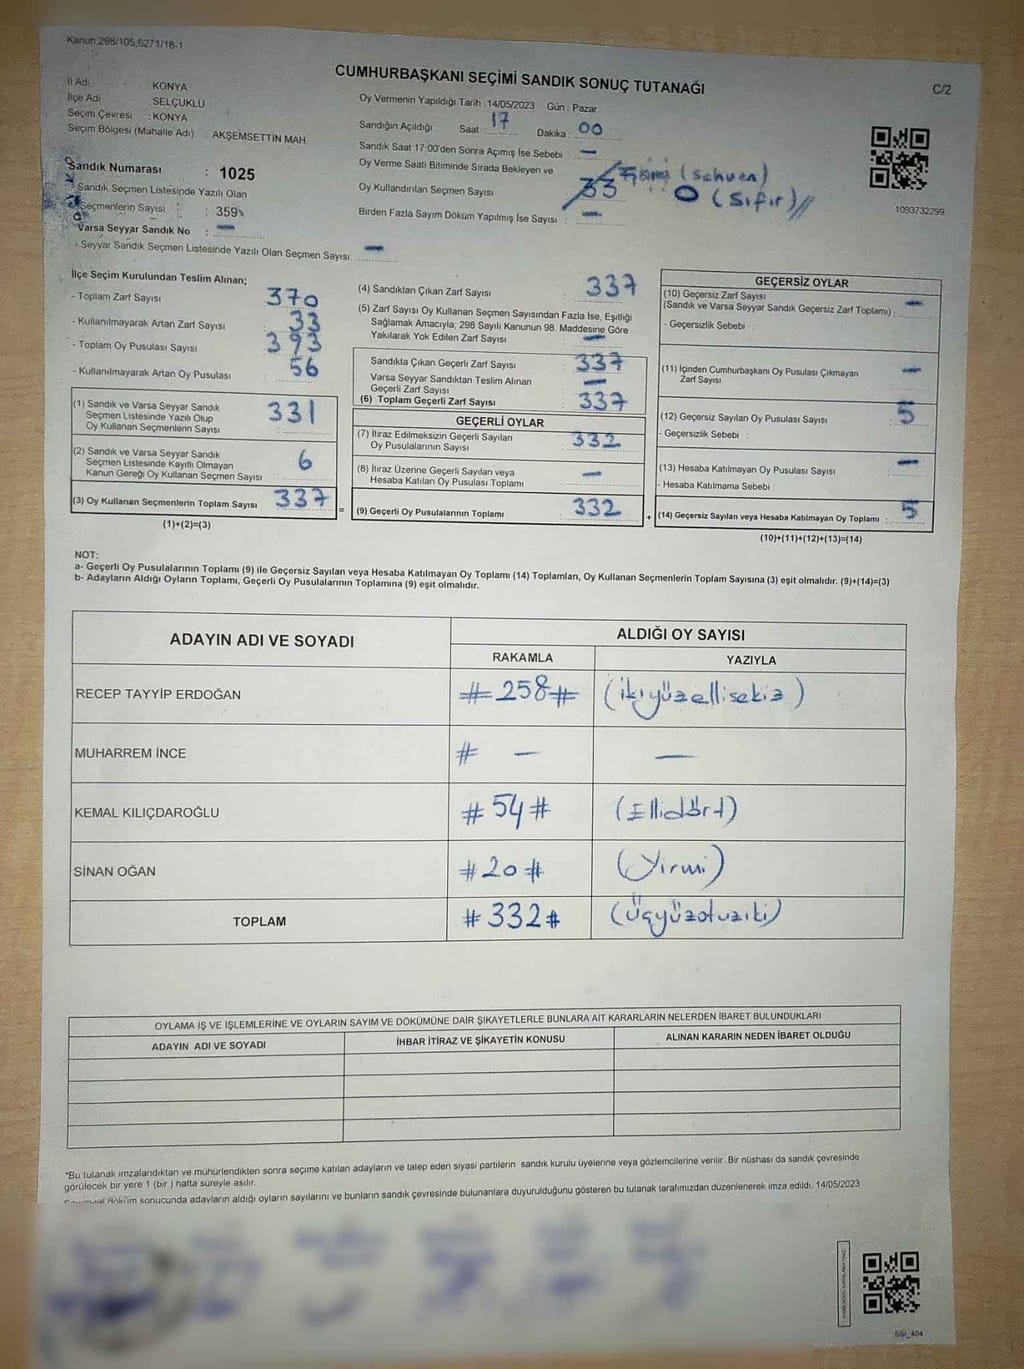 Kanun 298/105,6271/18-1
CUMHURBAŞKANI SEÇİMİ SANDIK SONUÇ TUTANAĞI
C/2
İl Adı : KONYA
İlçe Adı : SELÇUKLU
Seçim Çevresi : KONYA
Seçim Bölgesi (Mahalle Adı) : AKŞEMSETTİN MAH.
Sandık Numarası : 1025
Sandık Seçmen Listesinde Yazılı Olan
Seçmenlerin Sayısı : 359
Varsa Seyyar Sandık No : -
- Seyyar Sandık Seçmen Listesinde Yazılı Olan Seçmen Sayısı. -
Oy Vermenin Yapıldığı Tarih : 14/05/2023 Gün : Pazar
Sandığın Açıldığı Saat : 17 Dakika : 00
Sandık Saat 17:00'den Sonra Açımış İse Sebebi : -
Oy Verme Saati Bitiminde Sırada Bekleyen ve
Oy Kullandırılan Seçmen Sayısı : 33 (sehven)
0 (Sıfır)//
Birden Fazla Sayım Döküm Yapılmış İse Sayısı : -
1093732299
İlçe Seçim Kurulundan Teslim Alınan;
- Toplam Zarf Sayısı : 370
- Kullanılmayarak Artan Zarf Sayısı : 33
- Toplam Oy Pusulası Sayısı : 393
- Kullanılmayarak Artan Oy Pusulası : 56
(1) Sandık ve Varsa Seyyar Sandık
Seçmen Listesinde Yazılı Olup
Oy Kullanan Seçmenlerin Sayısı : 331
(2) Sandık ve Varsa Seyyar Sandık
Seçmen Listesinde Kayıtlı Olmayan
Kanun Gereği Oy Kullanan Seçmen Sayısı : 6
(3) Oy Kullanan Seçmenlerin Toplam Sayısı : 337
(1)+(2)=(3)
(4) Sandıktan Çıkan Zarf Sayısı : 337
(5) Zarf Sayısı Oy Kullanan Seçmen Sayısından Fazla İse, Eşitliği
Sağlamak Amacıyla; 298 Sayılı Kanunun 98. Maddesine Göre
Yakılarak Yok Edilen Zarf Sayısı : -
Sandıkta Çıkan Geçerli Zarf Sayısı : 337
Varsa Seyyar Sandıktan Teslim Alınan
Geçerli Zarf Sayısı : -
(6) Toplam Geçerli Zarf Sayısı : 337
GEÇERLİ OYLAR
(7) İtiraz Edilmeksizin Geçerli Sayılan
Oy Pusulalarının Sayısı : 332
(8) İtiraz Üzerine Geçerli Sayılan veya
Hesaba Katılan Oy Pusulası Toplamı : -
= (9) Geçerli Oy Pusulalarının Toplamı : 332
GEÇERSİZ OYLAR
(10) Geçersiz Zarf Sayısı
(Sandık ve Varsa Seyyar Sandık Geçersiz Zarf Toplamı) : -
- Geçersizlik Sebebi :
(11) İçinden Cumhurbaşkanı Oy Pusulası Çıkmayan
Zarf Sayısı : -
(12) Geçersiz Sayılan Oy Pusulası Sayısı : 5
- Geçersizlik Sebebi :
(13) Hesaba Katılmayan Oy Pusulası Sayısı : -
- Hesaba Katılmama Sebebi :
+ (14) Geçersiz Sayılan veya Hesaba Katılmayan Oy Toplamı : 5
(10)+(11)+(12)+(13)=(14)
NOT:
a- Geçerli Oy Pusulalarının Toplamı (9) ile Geçersiz Sayılan veya Hesaba Katılmayan Oy Toplamı (14) Toplamları, Oy Kullanan Seçmenlerin Toplam Sayısına (3) eşit olmalıdır. (9)+(14)=(3)
b- Adayların Aldığı Oyların Toplamı, Geçerli Oy Pusulalarının Toplamına (9) eşit olmalıdır.
ADAYIN ADI VE SOYADI ALDIĞI OY SAYISI
RAKAMLA YAZIYLA
RECEP TAYYİP ERDOĞAN #258# (ikiyüzellisekiz)
MUHARREM İNCE # - -
KEMAL KILIÇDAROĞLU #54# (Ellidört)
SİNAN OĞAN #20# (Yirmi)
TOPLAM #332# (Üçyüzotuziki)
OYLAMA İŞ VE İŞLEMLERİNE VE OYLARIN SAYIM VE DÖKÜMÜNE DAİR ŞİKAYETLERLE BUNLARA AİT KARARLARIN NELERDEN İBARET BULUNDUKLARI
ADAYIN ADI VE SOYADI İHBAR İTİRAZ VE ŞİKAYETİN KONUSU ALINAN KARARIN NEDEN İBARET OLDUĞU
*Bu tutanak imzalandıktan ve mühürlendikten sonra seçime katılan adayların ve talep eden siyasi partilerin sandık kurulu üyelerine veya gözlemcilerine verilir. Bir nüshası da sandık çevresinde
görülecek bir yere 1 (bir ) hafta süreyle asılır.
ve döküm sonucunda adayların aldığı oyların sayılarını ve bunların sandık çevresinde bulunanlara duyurulduğunu gösteren bu tutanak tarafımızdan düzenlenerek imza edildi. 14/05/2023
SSI_404